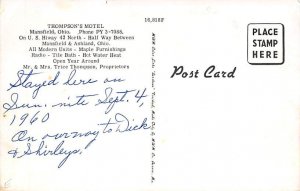 16,818F
THOMPSON'S MOTEL
Mansfield, Ohio. Phone PY 3-7988,
On U. S. Hiway 42 North - Half Way Between
Mansfield & Ashland, Ohio.
All Modern Units - Maple Furnishings
Radio - Tile Bath - Hot Water Heat
Open Year Around
Mr. & Mrs. Trice Thompson, Proprietors
Post Card
PLACE
STAMP
HERE
Stayed here on
Sun. nite Sept. 4,
1960
On our way to Dick
& Shirleys.